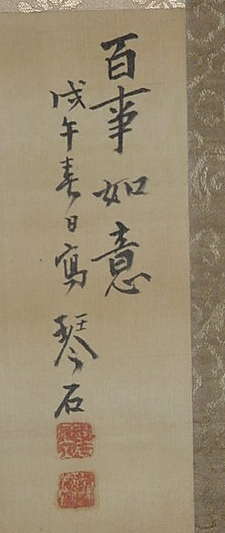 百事如意
戊午春日寫琴石